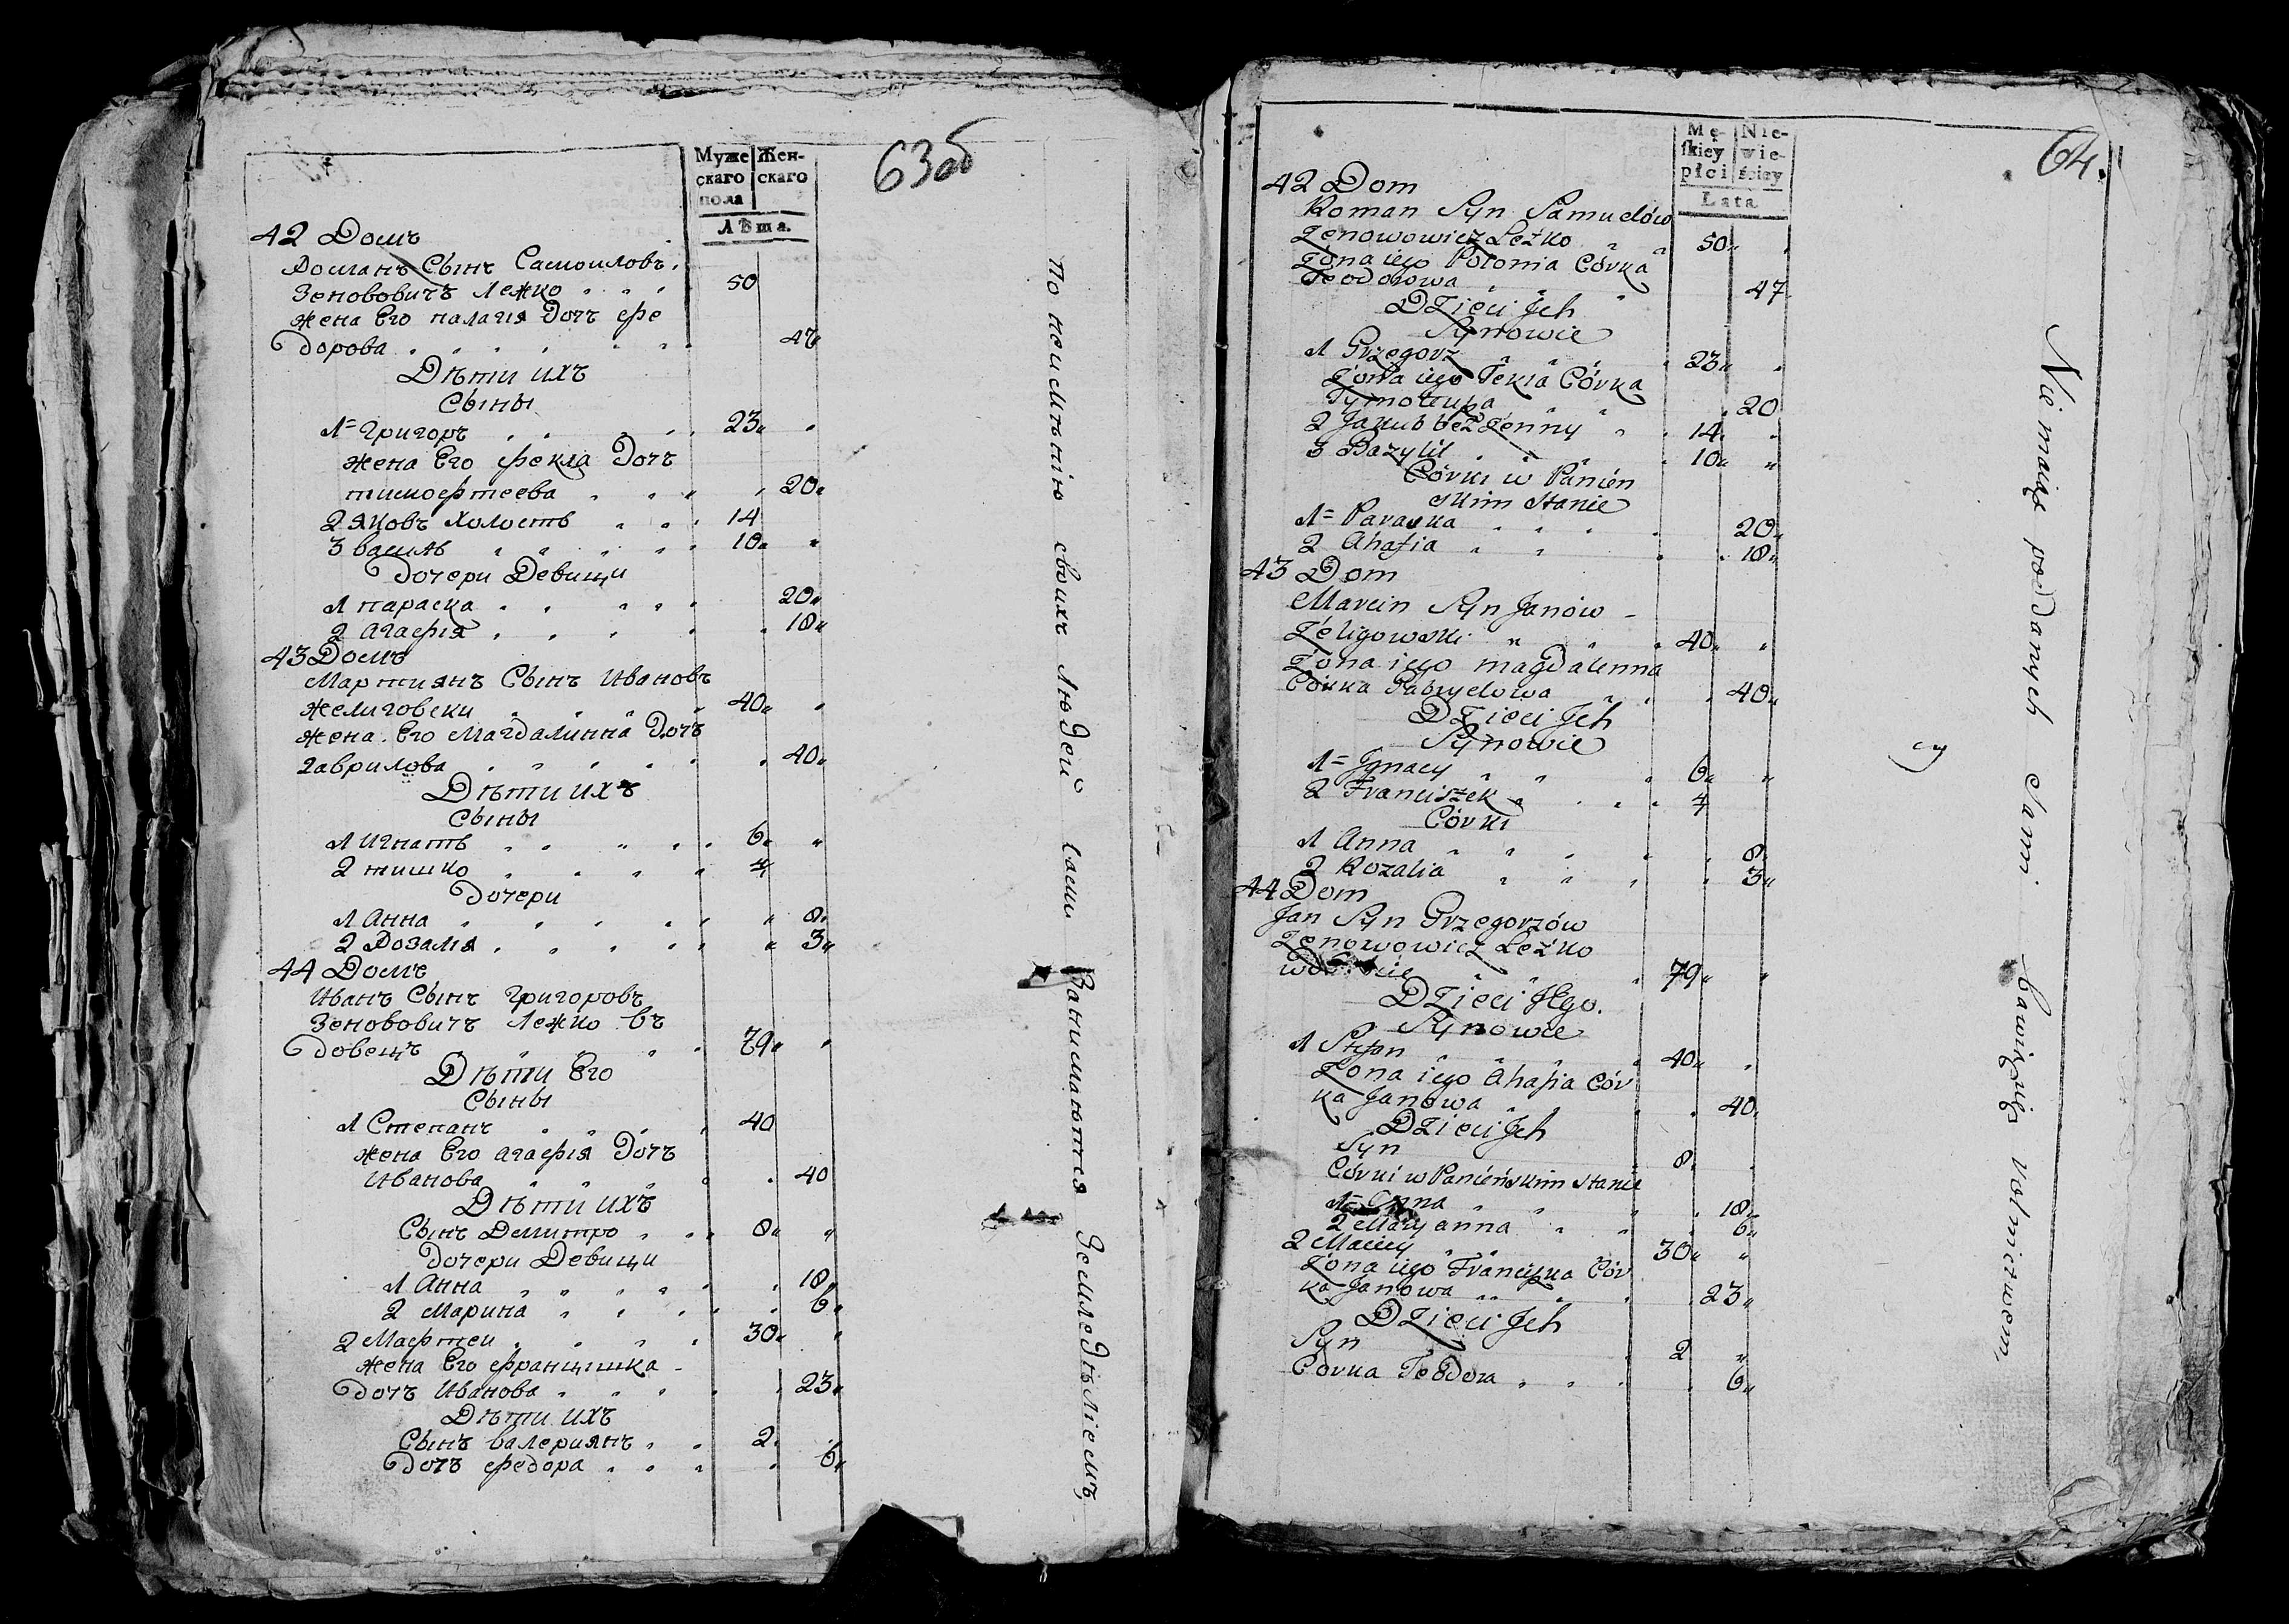 63об
Муже Жен-
скаго скаго
пола
Лѣта.
42 Домъ
Романъ Сынъ Самоиловъ
Зенововичъ Лежко 50
жена Его палагія Дочъ фе
дорова 47
Дѣти ихъ
Сыны
1 Григоръ 23
жена Его фекла Дочъ
тимофтеева 20
2 яковъ холостъ 14
3 василь 10
дочери Девици
1 параска 20
2 агафія 18
43 Домъ
Мартиянъ Сынъ Ивановъ
желиговски 40
жена Его Магдалинна Дочъ
гаврилова 40
Дѣти ихъ
Сыны
1 Игнатъ 6
2 тишко 4
дочери
1 Анна 8
2 Розалія 3
44 Домъ
Иванъ Сынъ Григоровъ
Зенововичъ Лежко въ
довецъ 79
Дѣти Его
Сыны
1 Степанъ 40
жена Его агафія Дочъ
Иванова 40
Дѣти ихъ
Сынъ Демитро 8
дочери Девици
1 Анна 18
2 Марина 6
2 Мафтеи 30
жена Его францишка
дочъ Иванова 23
Дѣти ихъ
Сынъ валериянъ 2
дочъ федора 6
По неимѣнію своихъ людей сами занимаются земледѣліемъ,
64.
Mę- Nie-
skiey wie-
płci ściey
Lata
42 Dom
Roman Syn Samuelów
Zenowowicz Leżko 50
Żona iego Polonia Córka
Teodorowa 47
Dzieci Jch
Synowie
1 Grzegorz 23
Żona iego Tekla Córka
Tymoteusza 20
2 Jakub beżżenny 14
3 Bazylil 10
Córki w Panień
skim Stanie
1 Paraska 20
2 Ahafia 18
43 Dom
Marcin Syn Janów
Żeligowski 40
Żona iego magdalenna
Córka Gabryelowa 40
Dzieci Jch
Synowie
1 Jgnacy 6
2 Franciszek 4
Córki
1 Anna 8
2 Rozalia 3
44 Dom
Jan Syn Grzegorzów
Zenowowicz Leżko
79
Dzieci Jego.
Synowie
1 Stefan 40
Żona iego Ahafia Cór
ka Janowa 40
Dzieci Jch
Syn 8
Córki w Panieńskim Stanie
1 Anna 18
2 Maryanna 6
2 Maciey 30
Żona iego Franciszka Cór
ka Janowa 23
Dzieci Jch
Syn 2
Córka Teodora 6
Nie maiąc poddanych sami bawią się rolnictwem,